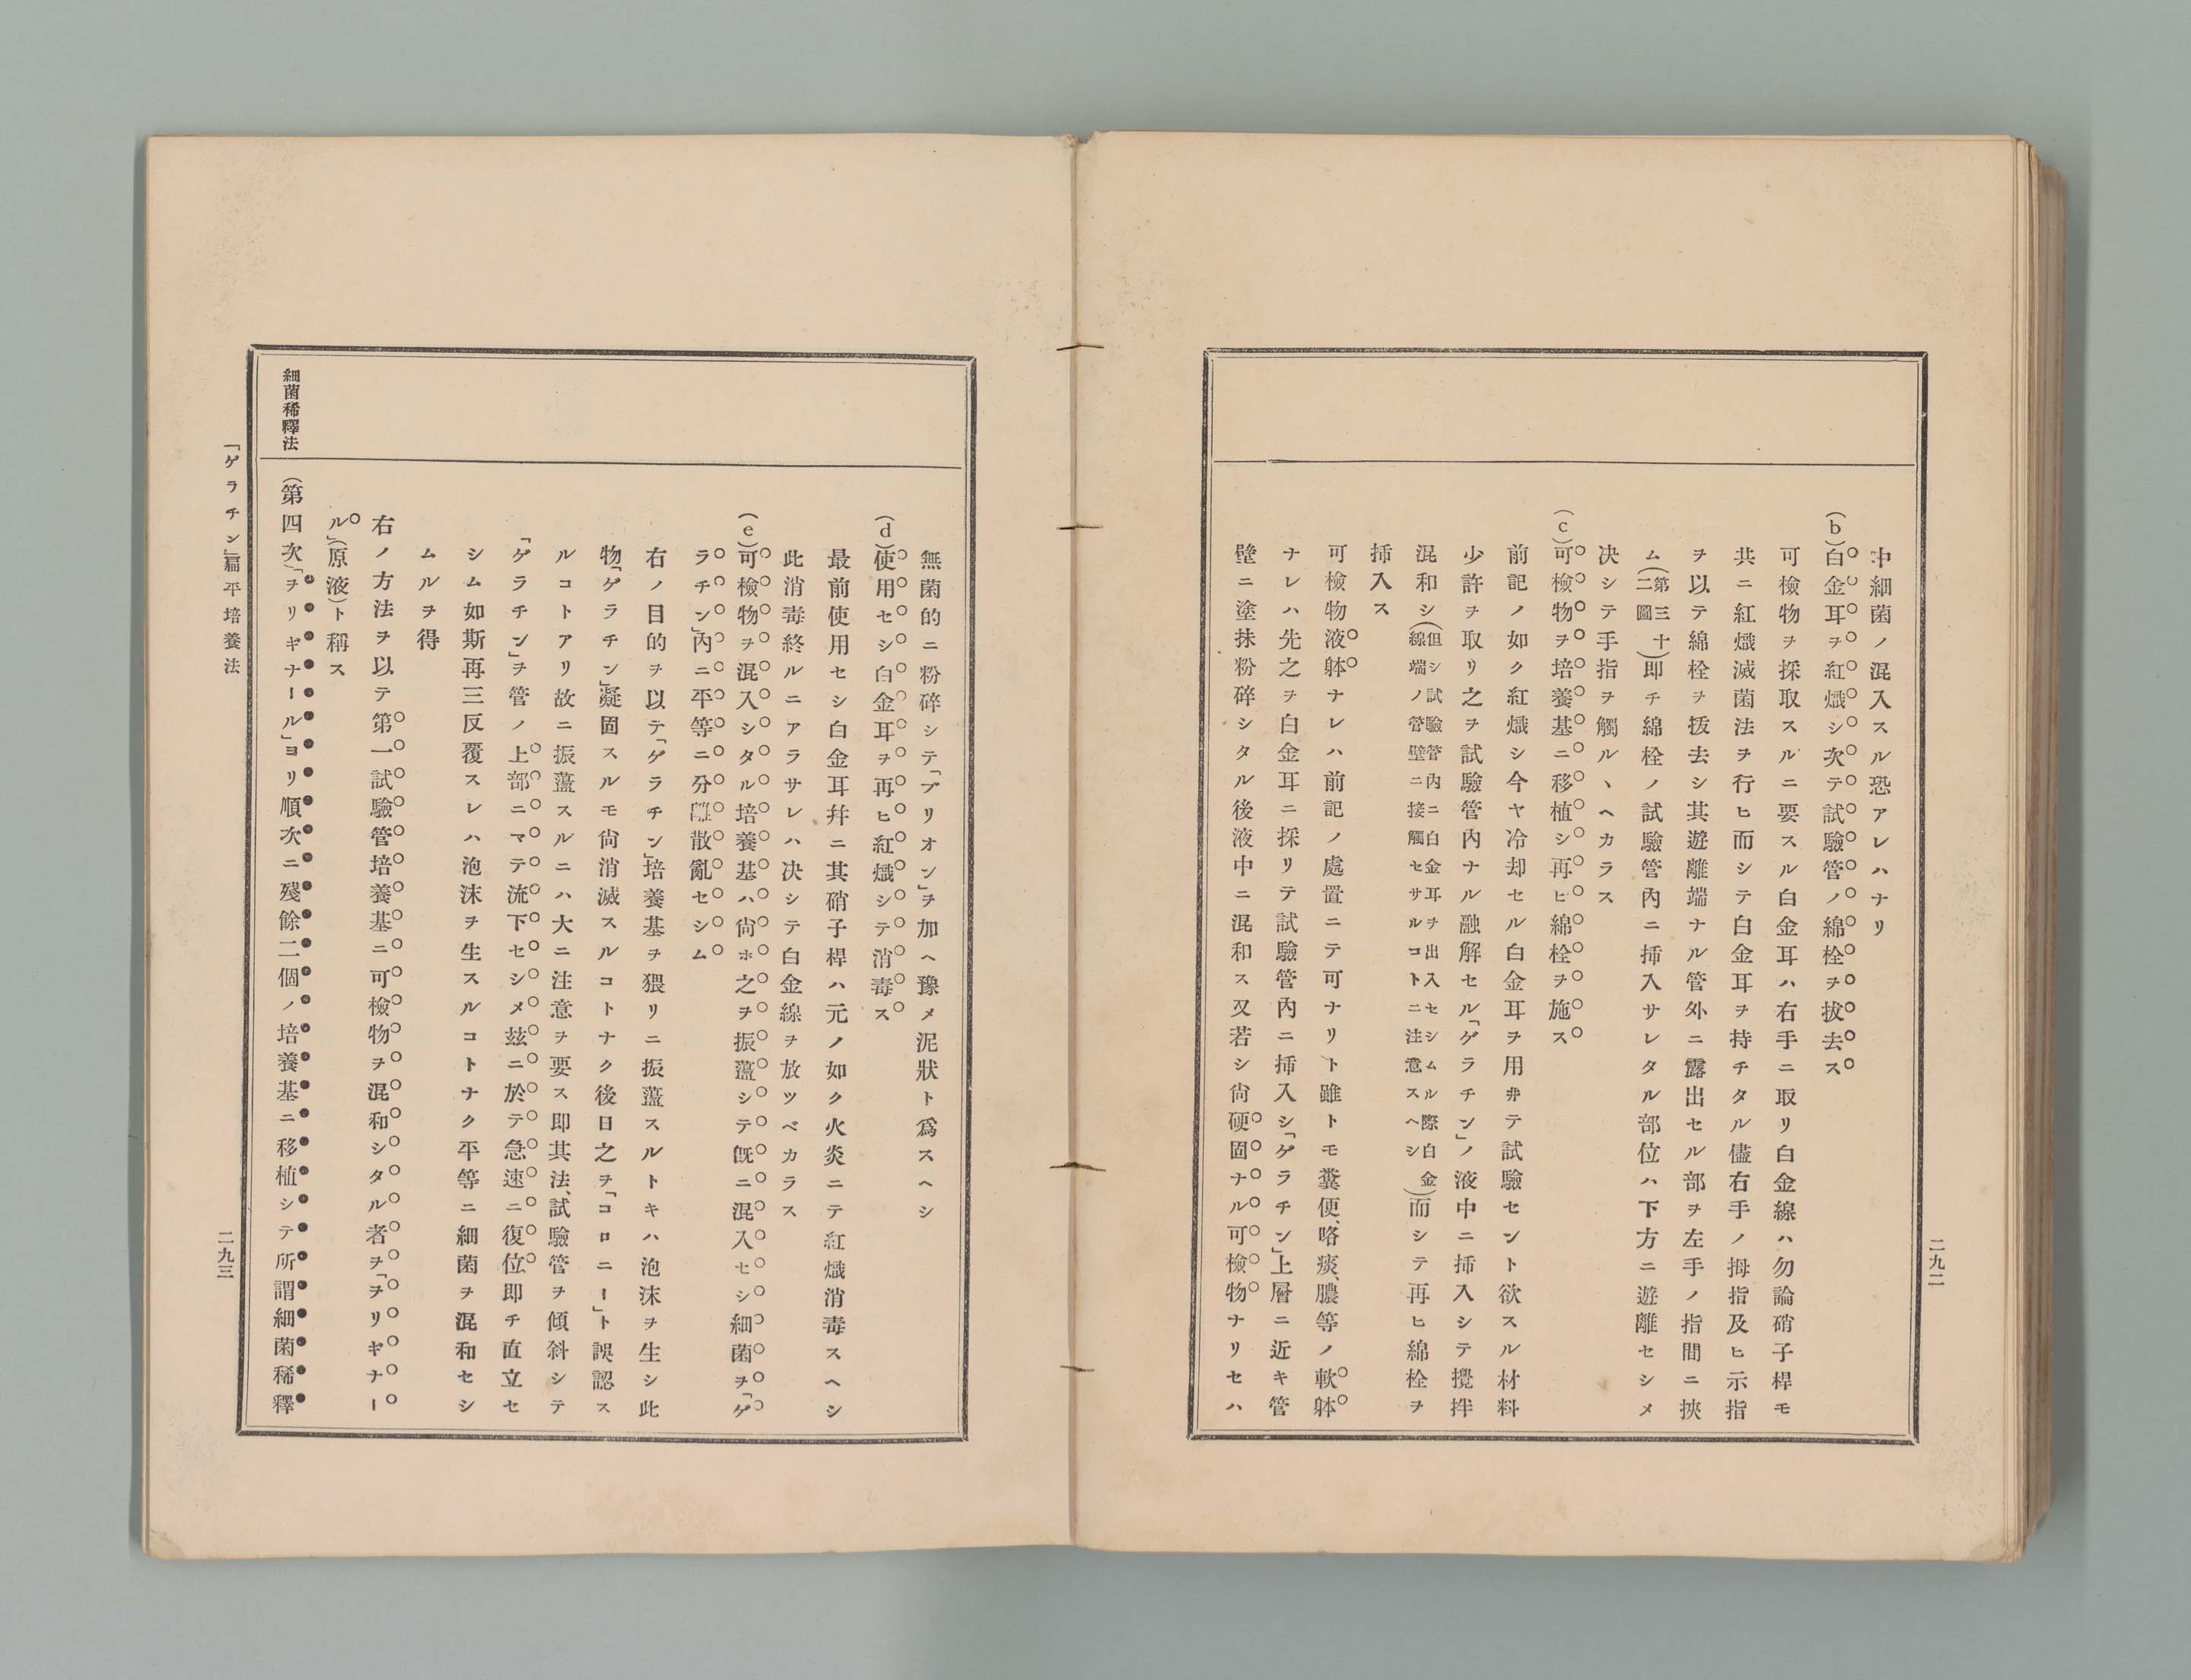 二九二
中細菌ノ混入スル恐アレハナリ
(b)白金耳ヲ紅熾シ次テ試驗管ノ綿栓ヲ拔去ス
可檢物ヲ採取スルニ要スル白金耳ハ右手ニ取リ白金線ハ勿論硝子桿モ
共ニ紅熾滅菌法ヲ行ヒ而シテ白金耳ヲ持チタル儘右手ノ拇指及ヒ示指
ヲ以テ綿栓ヲ拔去シ其遊離端ナル管外ニ露出セル部ヲ左手ノ指間ニ挾
ム(第三十二圖)即チ綿栓ノ試驗管內ニ挿入サレタル部位ハ下方ニ遊離セシメ
决シテ手指ヲ觸ルヽヘカラス
(c)可檢物ヲ培養基ニ移植シ再ヒ綿栓ヲ施ス
前記ノ如ク紅熾シ今ヤ冷却セル白金耳ヲ用井テ試驗セント欲スル材料
少許ヲ取リ之ヲ試驗管內ナル融解セル「ゲラチン」ノ液中ニ挿入シテ攪拌
混和シ(但シ試驗管內ニ白金耳ヲ出入セシムル際白金線端ノ管壁ニ接觸セサルコトニ注意スヘシ)而シテ再ヒ綿栓ヲ
挿入ス
可檢物液躰ナレハ前記ノ處置ニテ可ナリト雖トモ糞便、咯痰、膿等ノ軟躰
ナレハ先之ヲ白金耳ニ採リテ試驗管內ニ挿入シ「ゲラチン」上層ニ近キ管
壁ニ塗抹粉碎シタル後液中ニ混和ス又若シ尙硬固ナル可檢物ナリセハ
無菌的ニ粉碎シテ「ブリオン」ヲ加ヘ豫メ泥狀ト爲スヘシ
(d)使用セシ白金耳ヲ再ヒ紅熾シテ消毒ス
最前使用セシ白金耳幷ニ其硝子桿ハ元ノ如ク火炎ニテ紅熾消毒スヘシ
此消毒終ルニアラサレハ决シテ白金線ヲ放ツベカラス
(e)可檢物ヲ混入シタル培養基ハ尙ホ之ヲ振盪シテ旣ニ混入セシ細菌ヲ「ゲ
ラチン」內ニ平等ニ分離散亂セシム
右ノ目的ヲ以テ「ゲラチン」培養基ヲ猥リニ振盪スルトキハ泡沫ヲ生シ此
物「ゲラチン」凝固スルモ尙消滅スルコトナク後日之ヲ「コロニー」ト誤認ス
ルコトアリ故ニ振盪スルニハ大ニ注意ヲ要ス即其法、試驗管ヲ傾斜シテ
「ゲラチン」ヲ管ノ上部ニマテ流下セシメ玆ニ於テ急速ニ復位即チ直立セ
シム如斯再三反覆スレハ泡沫ヲ生スルコトナク平等ニ細菌ヲ混和セシ
ムルヲ得
右ノ方法ヲ以テ第一試驗管培養基ニ可檢物ヲ混和シタル者ヲ「ヲリギナー
ル」(原液)ト稱ス
細菌稀釋法
(第四次)「ヲリギナール」ヨリ順次ニ殘餘二個ノ培養基ニ移植シテ所謂細菌稀釋
「ゲラチン」扁平培養法
二九三